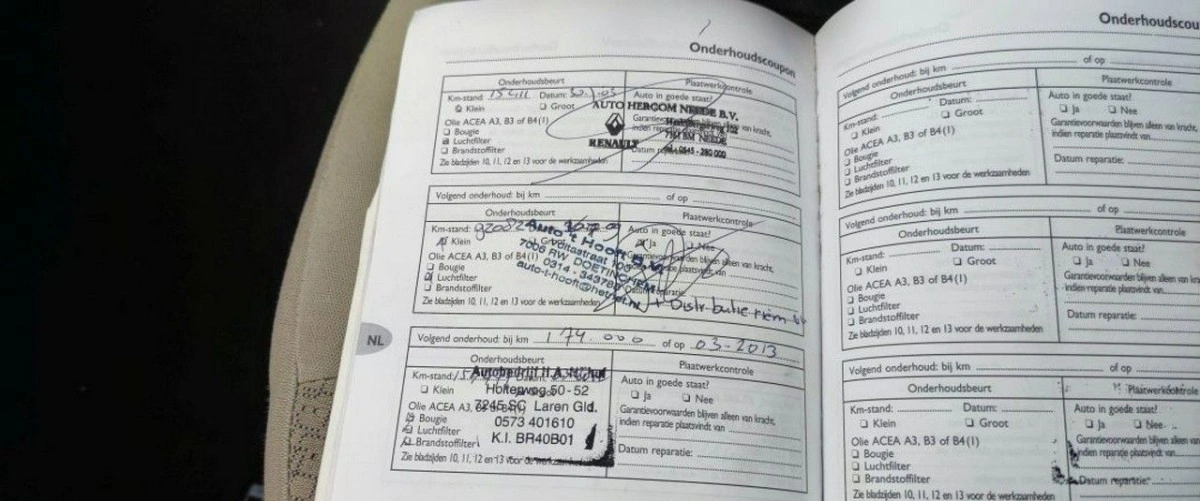 Onderhoudscoupon
Onderhoudsbeurt
Plaatwerkcontrole
Km-stand Datum:
Auto in goede staat?
Klein Groot
AUTO HERCOM NEEDE B.V.
Olie ACEA A3, B3 of B4(1)
Garantievoorwaarden blijven alleen van kracht,
Bougie
indien
7161 BM NEEDE
Luchtfilter
RENAULT
Datum
0545 - 280 000
Brandstoffilter
Zie bladzijden 10, 11, 12 en 13 voor de werkzaamheden
Volgend onderhoud: bij km of op
Onderhoudsbeurt
Plaatwerkcontrole
Km-stand:
Auto in goede staat?
Klein
Ja Nee
Auto 't Hooft B.V.
Voltastraat
7006 RW DOETINCHEM
0314 -
auto-t-hooft@hetnet.nl
Olie ACEA A3, B3 of B4(1)
blijven alleen van kracht,
Bougie
plaatsvindt van
Luchtfilter
Brandstoffilter
+ Distributie riem
Zie bladzijden 10, 11, 12 en 13 voor de werkzaamheden
NL
Volgend onderhoud: bij km 174.000 of op 03-2013
Onderhoudsbeurt
Plaatwerkcontrole
Km-stand:
Auto in goede staat?
Klein
Ja Nee
Autobedrijf H.A.
Holterweg 50 - 52
7245 SC Laren Gld.
0573 401610
K.I. BR40B01
Olie ACEA A3,
Garantievoorwaarden blijven alleen van kracht,
Bougie
indien reparatie plaatsvindt van
Luchtfilter
Brandstoffilter
Datum reparatie:
Zie bladzijden 10, 11, 12 en 13 voor de werkzaamheden
Onderhoudscou
Volgend onderhoud: bij km of op
Onderhoudsbeurt
Plaatwerkcontrole
Km-stand: Datum:
Auto in goede staat?
Klein Groot
Ja Nee
Olie ACEA A3, B3 of B4(1)
Garantievoorwaarden blijven alleen van kracht,
Bougie
indien reparatie plaatsvindt van
Luchtfilter
Brandstoffilter
Datum reparatie:
Zie bladzijden 10, 11, 12 en 13 voor de werkzaamheden
Volgend onderhoud: bij km of op
Onderhoudsbeurt
Plaatwerkcontrole
Km-stand: Datum:
Auto in goede staat?
Klein Groot
Ja Nee
Olie ACEA A3, B3 of B4(1)
Garantievoorwaarden blijven alleen van
Bougie
indien reparatie plaatsvindt van
Luchtfilter
Brandstoffilter
Datum reparatie:
Zie bladzijden 10, 11, 12 en 13 voor de werkzaamheden
Volgend onderhoud: bij km of op
Onderhoudsbeurt
Plaatwerkcontrole
Km-stand: Datum:
Auto in goede staat?
Klein Groot
Ja Nee
Olie ACEA A3, B3 of B4(1)
Garantievoorwaarden blijven alleen van kracht,
Bougie
indien reparatie plaatsvindt van
Luchtfilter
Brandstoffilter
Datum reparatie:
Zie bladzijden 10, 11, 12 en 13 voor de werkzaamheden